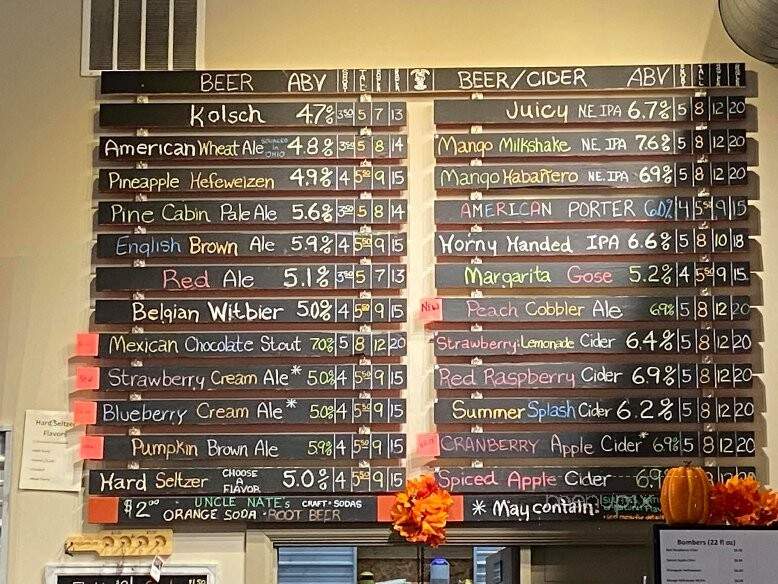 BEER ABV
Kolsch 4.7% 3⁵⁰ 5 7 13
American Wheat Ale 4.8% 3⁵⁰ 5 8 14
Pineapple Hefeweizen 4.9% 4 5⁵⁰ 9 15
Pine Cabin Pale Ale 5.6% 3⁵⁰ 5 8 14
English Brown Ale 5.9% 4 5⁵⁰ 9 15
Red Ale 5.1% 3⁵⁰ 5 7 13
Belgian Witbier 5.0% 4 5⁵⁰ 9 15
Mexican Chocolate Stout 7.0% 5 8 12 20
Strawberry Cream Ale* 5.0% 4 5⁵⁰ 9 15
Blueberry Cream Ale* 5.0% 4 5⁵⁰ 9 15
Pumpkin Brown Ale 5.9% 4 5⁵⁰ 9 15
Hard Seltzer CHOOSE A FLAVOR 5.0% 4 5⁵⁰ 9 15
$2⁰⁰ UNCLE NATE's CRAFT SODAS
ORANGE SODA · ROOT BEER
BEER/CIDER ABV
Juicy N.E. IPA 6.7% 5 8 12 20
Mango Milkshake NE. IPA 7.6% 5 8 12 20
Mango Habañero NE. IPA 6.9% 5 8 12 20
AMERICAN PORTER 6.0% 4 5⁵⁰ 9 15
Horny Handed IPA 6.6% 5 8 10 18
Margarita Gose 5.2% 4 5⁵⁰ 9 15
New Peach Cobbler Ale 6.9% 5 8 12 20
Strawberry Lemonade Cider 6.4% 5 8 12 20
Red Raspberry Cider 6.9% 5 8 12 20
Summer Splash Cider 6.2% 5 8 12 20
CRANBERRY Apple Cider* 6.9% 5 8 12 20
Spiced Apple Cider 6.9
* May contain:
Hard Seltzer
Flavors
Bombers (22 fl oz)